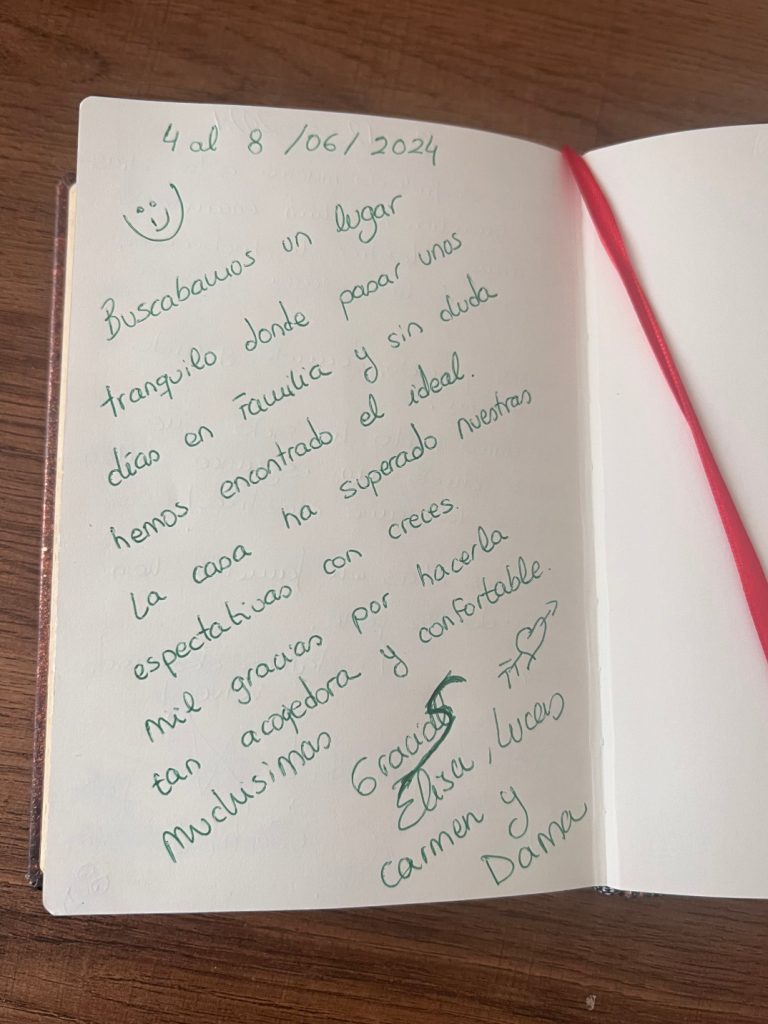 4 al 8 /06/ 2024
Buscabamos un lugar
tranquilo donde pasar unos
días en Familia y sin duda
hemos encontrado el ideal.
La casa ha superado nuestras
espectativas con creces.
Mil gracias por hacerla
tan acogedora y confortable.
Muchisimas Gracias
Elisa, Lucas
Carmen y
Dama